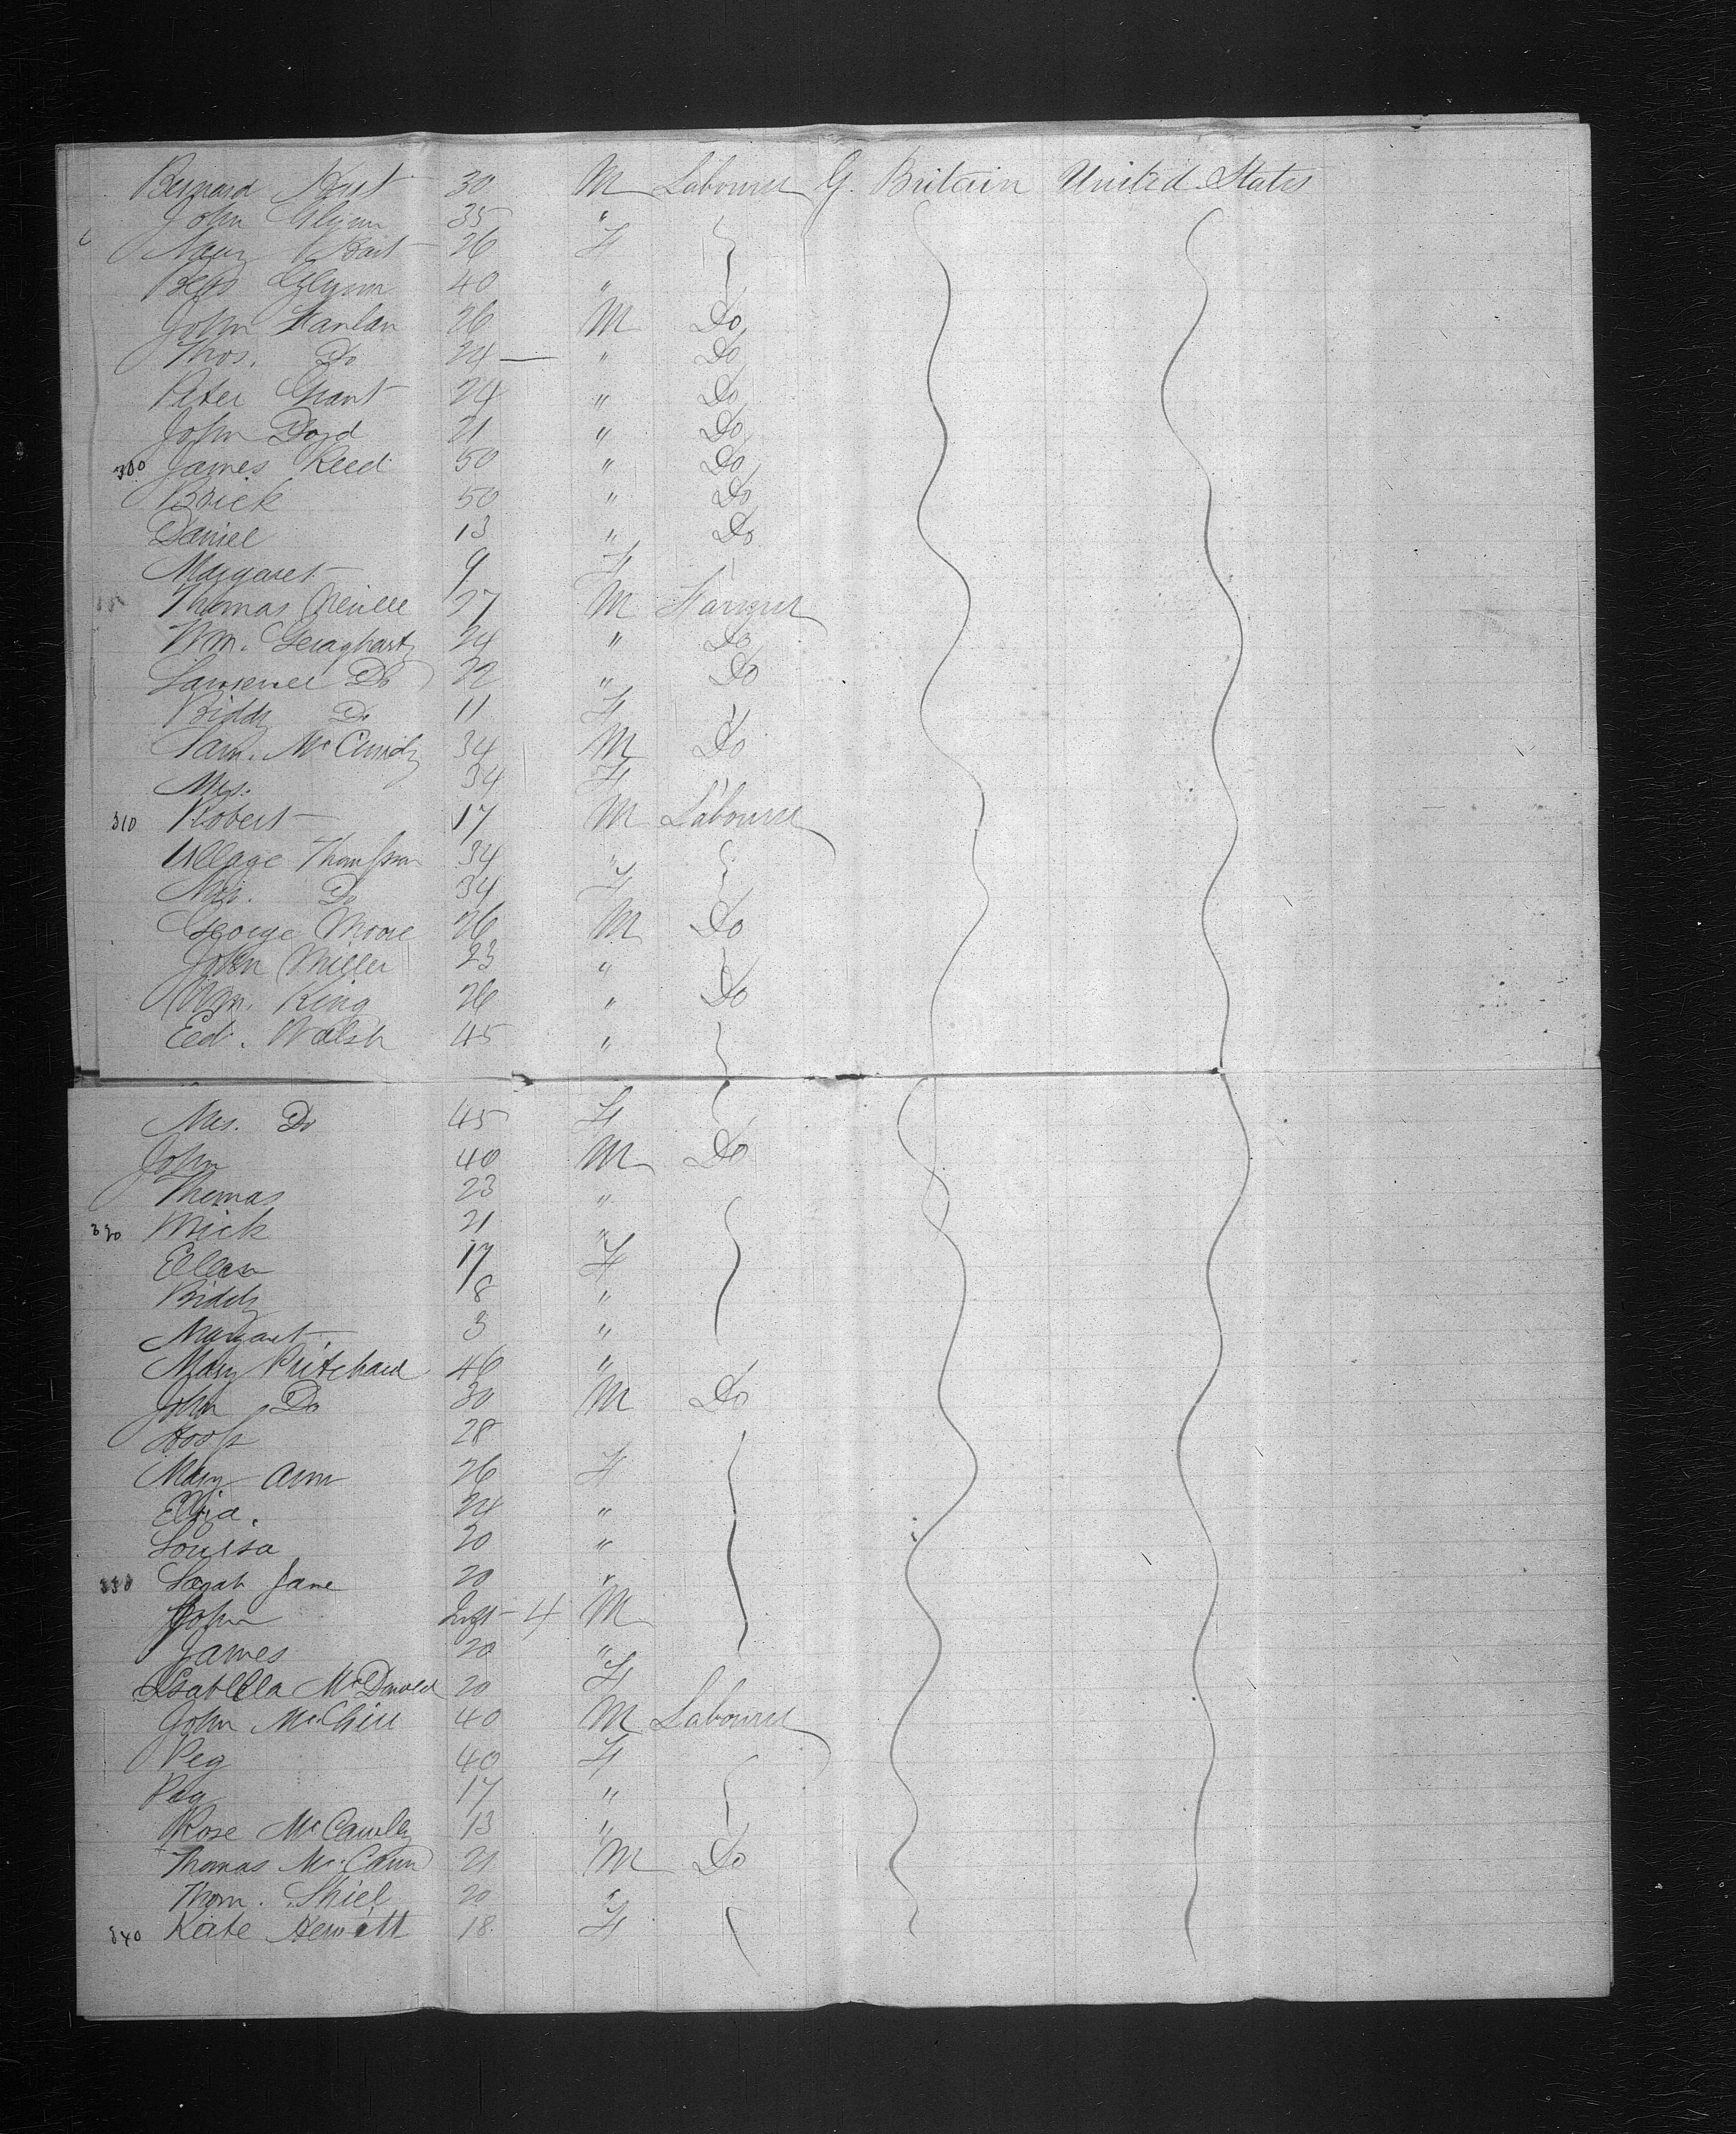 Bernard 30 M Labourer G. Britain United States
John Glynn 35 "
Mary 26 F
Bess Glynn 40 "
John Hanlan 26 M Do
Thos. Do 24 — " Do
Peter Grant 24 " Do
John Doyd 21 " Do
300 James Reed 50 " Do
Brick 50 " Do
Daniel 13 " Do
Margaret 9 F
Thomas Neville 27 M Farmer
Wm. Geragharty 24 " Do
Lawrence Do 22 " Do
Biddy Do 11 F
Sam. McCurndy 34 M Do
Mrs. 34 F
310 Robert 17 M Labourer
Village Thompson 34 "
Mrs. Do 34 F
George Moore 26 M Do
John Miller 23 "
Wm. King 26 " Do
Ed. Walsh 45 "
Mrs. Do 45 F
John 40 M Do
Thomas 23 "
320 Mick 21 "
Ellen 17 F
Biddy 8 "
Margaret 3 "
Mary Pritchard 46 "
John Do 30 M Do
28
Mary Ann 26 F
Eliza. 24 "
Louisa 20 "
330 Sarah Jane 20 "
John Inft 4 M
James 20 "
Isabella McDonald 20 F
John 40 M Labourer
Peg 40 F
Peg 17 "
Rose McCawley 13 "
Thomas McCann 21 M Do
Thom. Shiel 20 "
340 Kate Hewitt 18 F